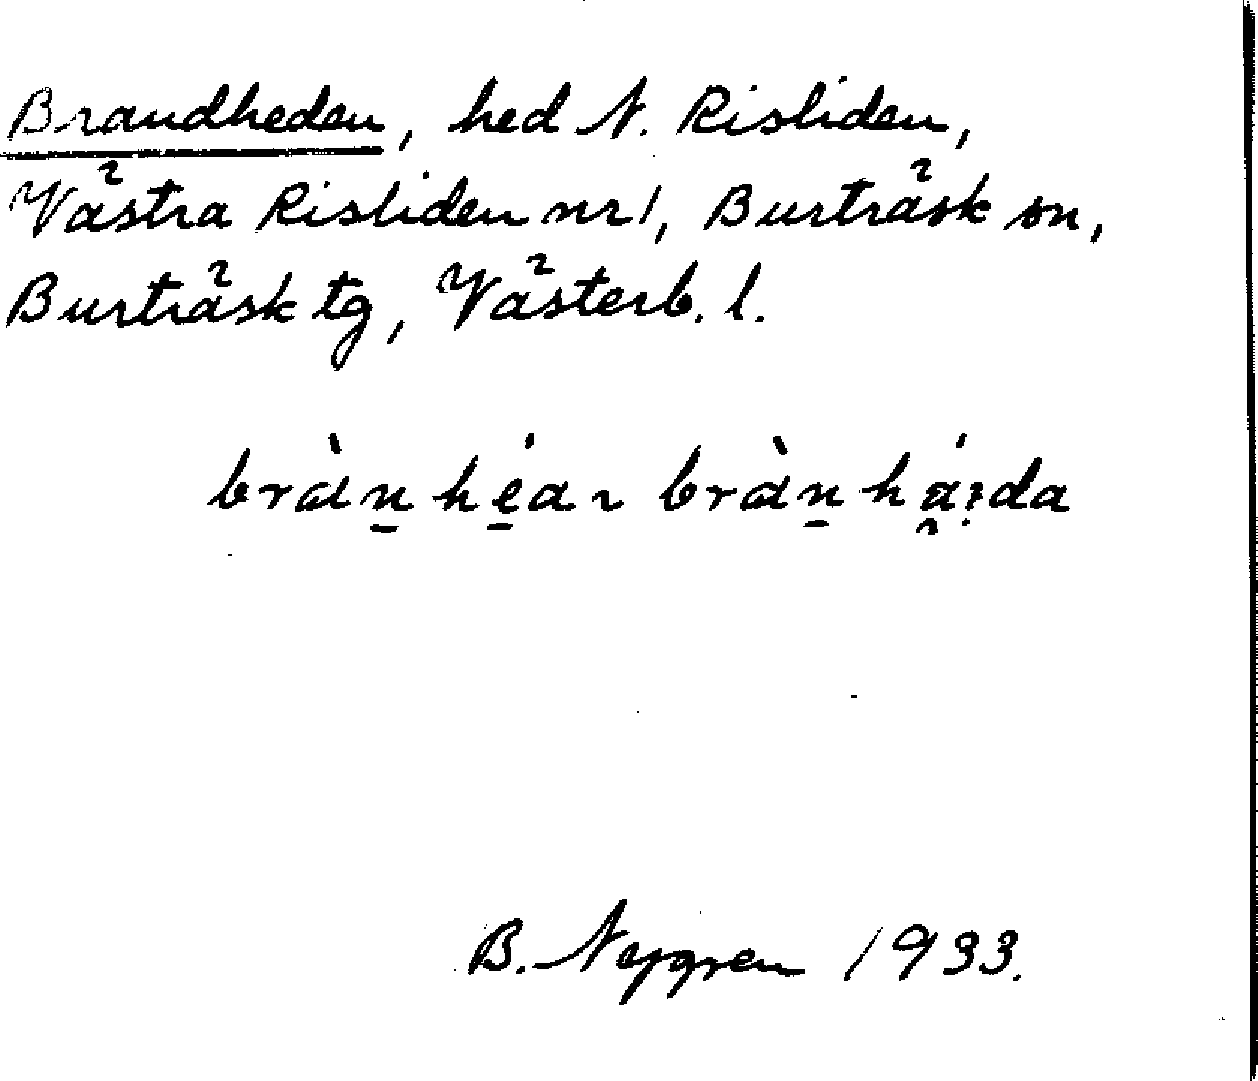 Brandheden, hed N. Risliden,
Västra Risliden nr 1, Burträsk sn,
Burträsk tg, Västerb. l.
bràn̠ hé̠a ~ bràn̠ há̯i̯da
B. Nygren 1933.